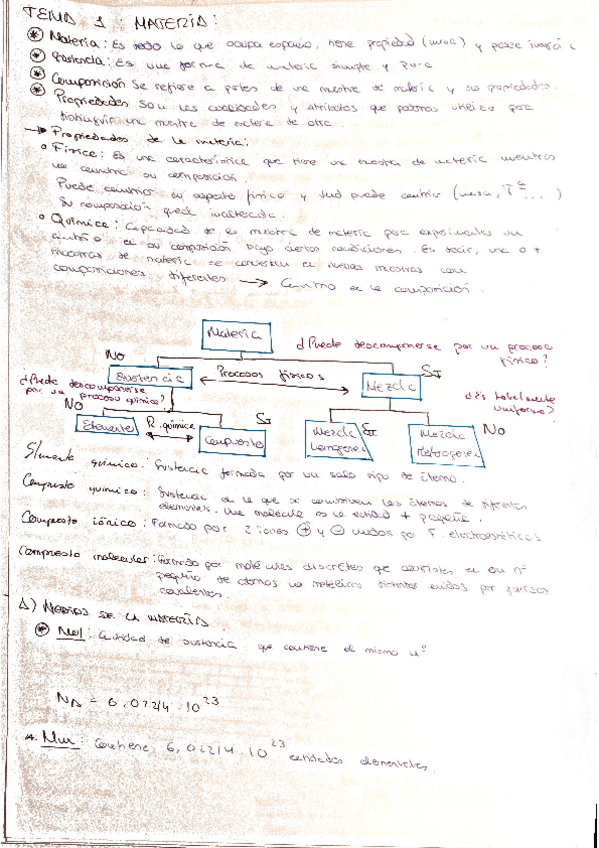 TEMA 1 : MATERIA:
Materia: Es todo lo que ocupa espacio, tiene propiedad (masa) y posee inercia
Sustancia: Es una forma de materia simple y pura.
Composición Se refiere a partes de una muestra de materia y sus propiedades.
Propiedades Son las cualidades y atributos que podemos utilizar para
distinguir una muestra de materia de otra.
→ Propiedades de la materia:
Física: Es una característica que tiene una muestra de materia mientras
no cambie su composición.
Puede cambiar su aspecto físico y puede cambiar (masa, Tª ...)
Su composición queda inalterada.
Química: Capacidad de muestra de materia para experimentar un
cambio en su composición bajo ciertas condiciones. Es decir, una o +
muestras de materia se convierten en nuevas muestras con
composiciones diferentes → Cambio en la composición.
Materia
¿Puede descomponerse por un proceso
físico?
NO
SI
Sustancia
Procesos físicos
Mezcla
¿Puede descomponerse
por un proceso químico?
¿Es totalmente
uniforme?
NO
SI
SI
NO
Elemento
R. química
Compuesto
Mezcla
homogénea
Mezcla
Heterogénea
Elemento químico: Sustancia formada por un solo tipo de átomo.
Compuesto químico: Sustancia en la que se combinan los átomos de diferentes
elementos. Una molécula es la entidad + pequeña.
Compuesto iónico: Formado por 2 iones + y - unidos por F. electrostáticas.
Compuesto molecular: Formado por moléculas discretas que consisten en un nº
pequeño de átomos no metálicos distintos unidos por fuerzas
covalentes.
MEDIDAS DE LA MATERIA
Mol: Cantidad de sustancia que contiene el mismo nº
NA = 6,02214 · 10 23
Contiene 6,02214 · 10 23 entidades elementales.